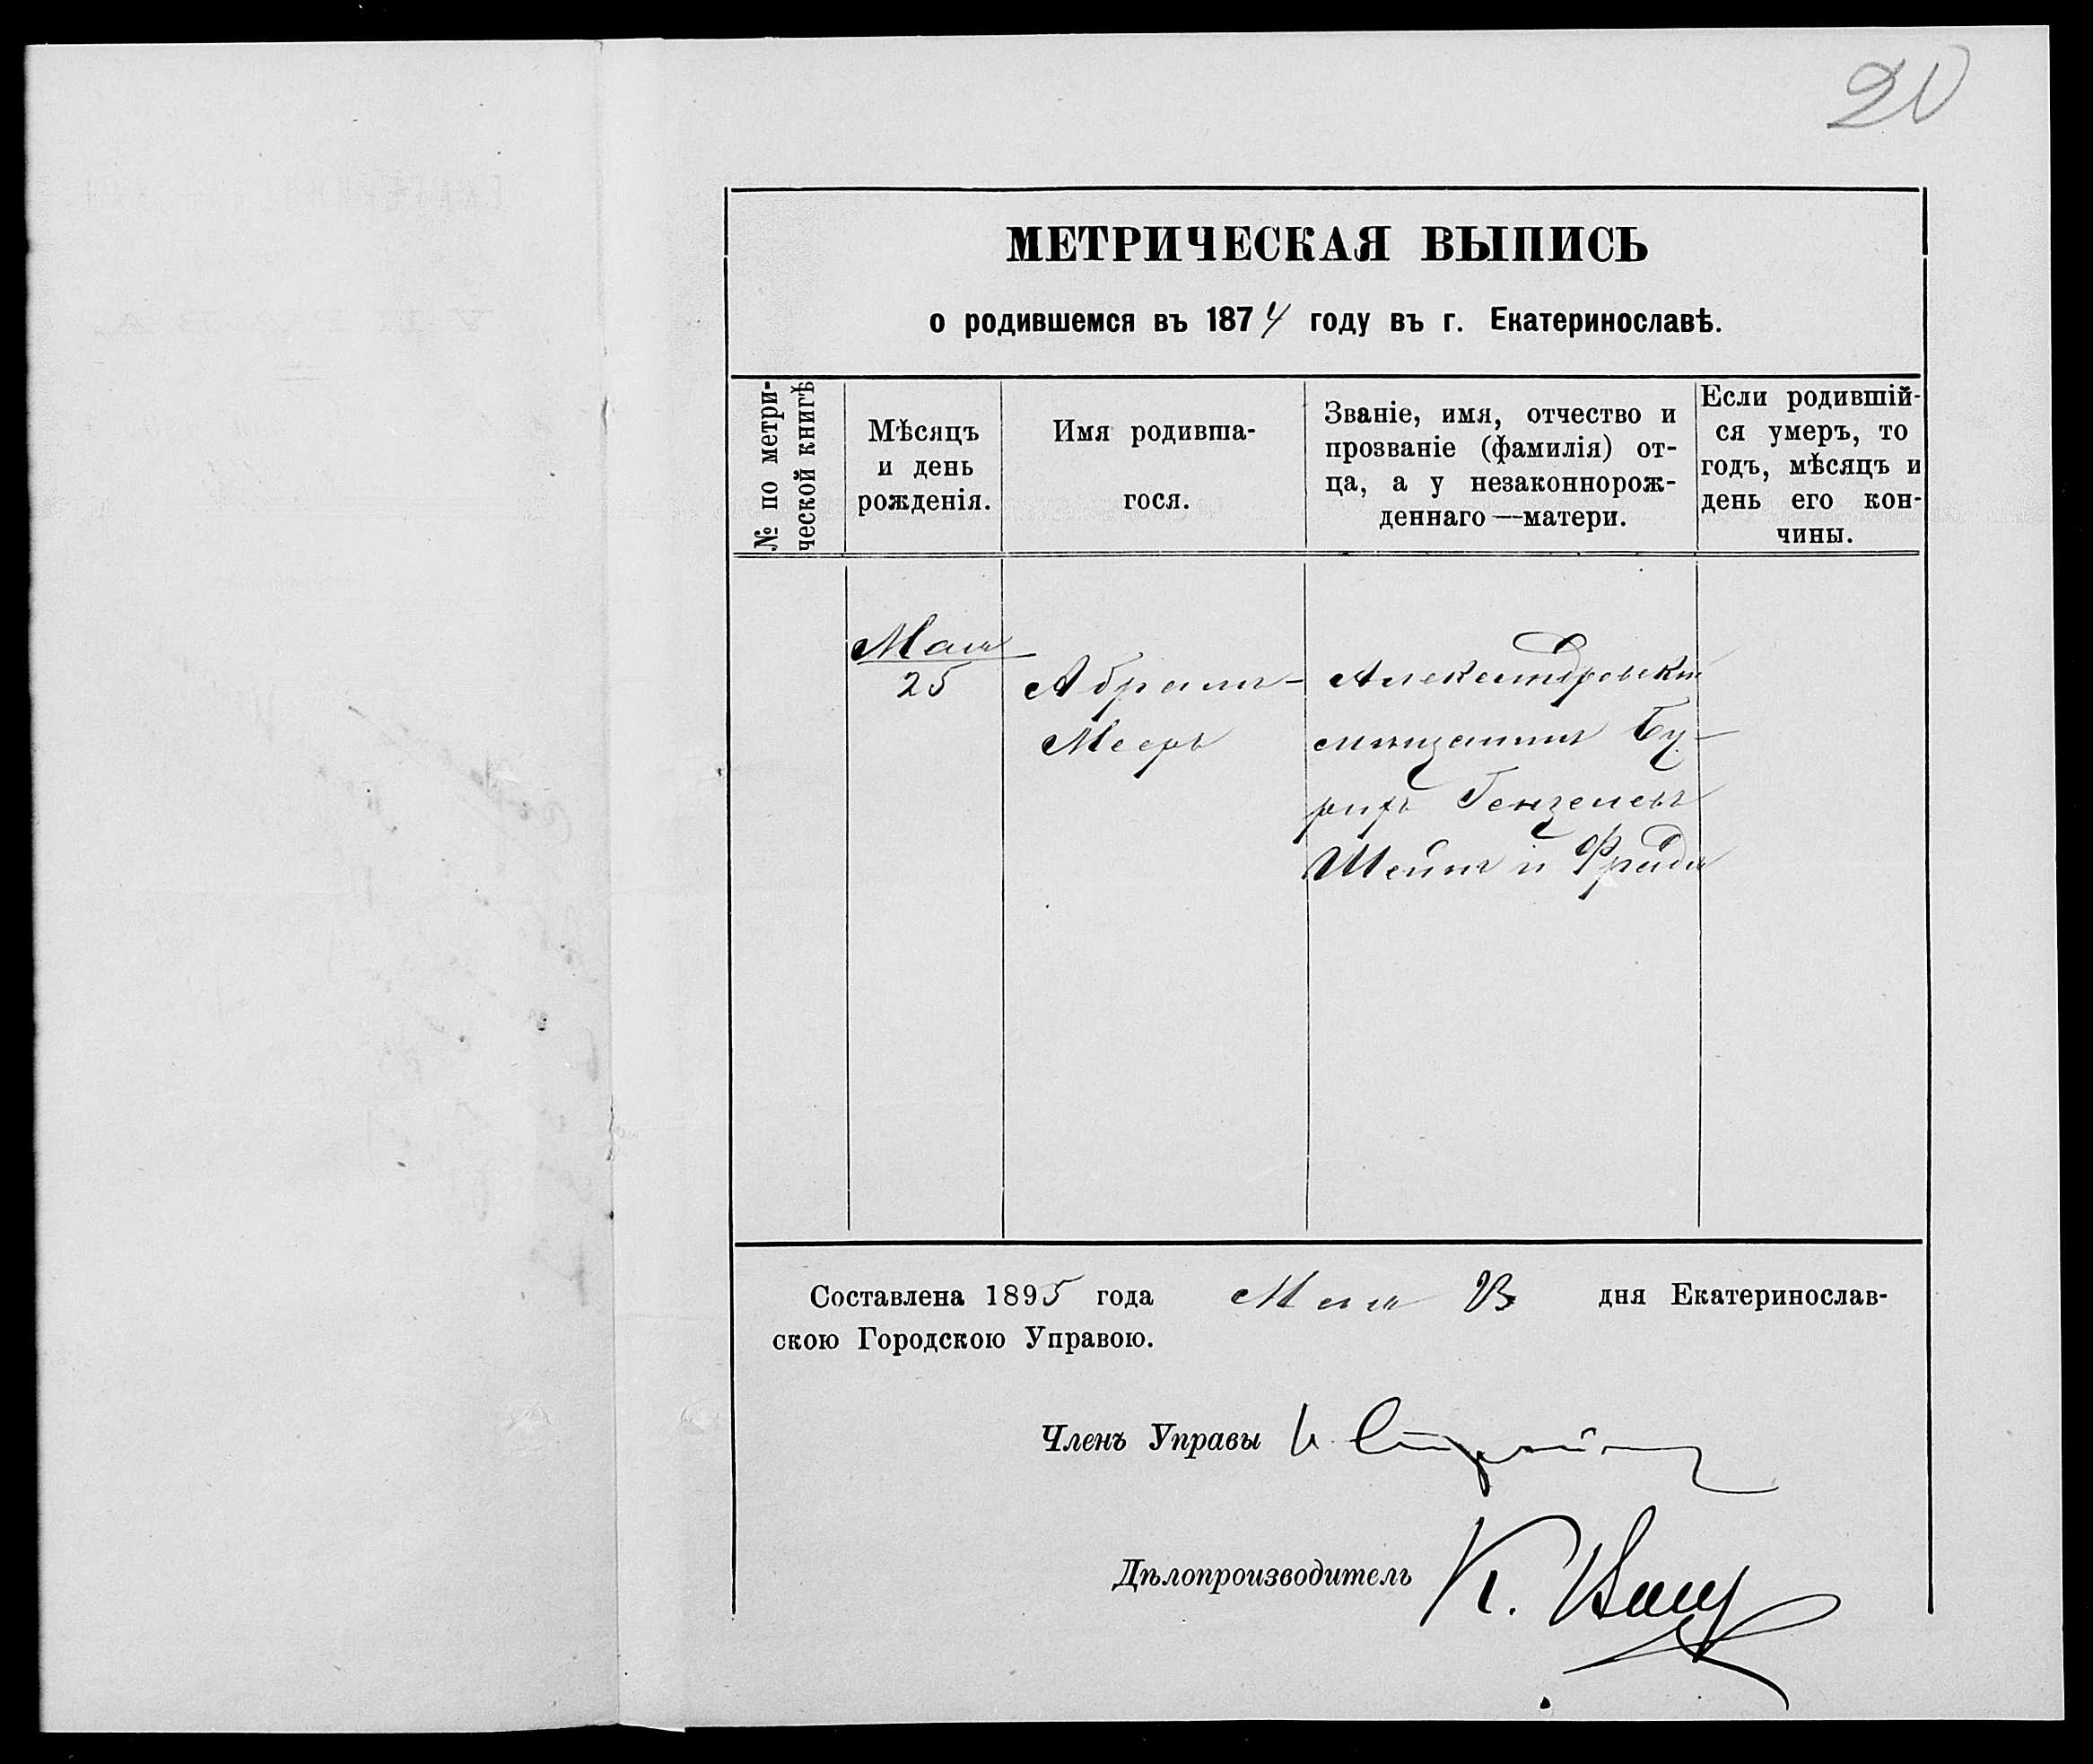 20
МЕТРИЧЕСКАЯ ВЫПИСЬ
о родившемся въ 1874 году въ г. Екатеринославѣ.
№ по метри-
ческой книгѣ
Мѣсяцъ
и день
рожденія.
Имя родивша-
гося.
Званіе, имя, отчество и
прозваніе (фамилія) от-
ца, а у незаконнорож-
деннаго—матери.
Если родившій-
ся умеръ, то
годъ, мѣсяцъ и
день его кон-
чины.
Мая
25
Абрамъ-
Мееръ
Александровскій
мѣщанинъ
Шеинъ и Фрида
Составлена 1895 года Мая дня Екатеринослав-
скою Городскою Управою.
Членъ Управы
Дѣлопроизводитель К.